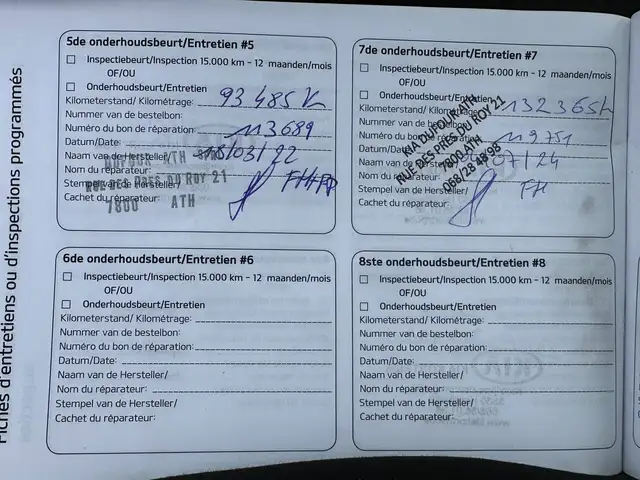 Fiches d'entretiens ou d'inspections programmés
5de onderhoudsbeurt/Entretien #5
Inspectiebeurt/Inspection 15.000 km - 12 maanden/mois
OF/OU
Onderhoudsbeurt/Entretien
Kilometerstand/ Kilométrage: 93485 K
Nummer van de bestelbon:
Numéro du bon de réparation: 113689
Datum/Date: /03/22
Naam van de Hersteller/
Nom du réparateur:
Stempel van de Hersteller/
Cachet du réparateur:
DUFOUR ATH
RUE DES PRES DU ROY 21
7800 ATH
6de onderhoudsbeurt/Entretien #6
Inspectiebeurt/Inspection 15.000 km - 12 maanden/mois
OF/OU
Onderhoudsbeurt/Entretien
Kilometerstand/ Kilométrage:
Nummer van de bestelbon:
Numéro du bon de réparation:
Datum/Date:
Naam van de Hersteller/
Nom du réparateur:
Stempel van de Hersteller/
Cachet du réparateur:
7de onderhoudsbeurt/Entretien #7
Inspectiebeurt/Inspection 15.000 km - 12 maanden/mois
OF/OU
Onderhoudsbeurt/Entretien
Kilometerstand/ Kilométrage: 132365K
Nummer van de bestelbon:
Numéro du bon de réparation: 119751
Datum/Date: /07/24
Naam van de Hersteller/
Nom du réparateur: FH
Stempel van de Hersteller/
Cachet du réparateur:
KIA DUFOUR ATH
RUE DES PRES DU ROY 21
7800 ATH
068/28 48 98
8ste onderhoudsbeurt/Entretien #8
Inspectiebeurt/Inspection 15.000 km - 12 maanden/mois
OF/OU
Onderhoudsbeurt/Entretien
Kilometerstand/ Kilométrage:
Nummer van de bestelbon:
Numéro du bon de réparation:
Datum/Date:
Naam van de Hersteller/
Nom du réparateur:
Stempel van de Hersteller/
Cachet du réparateur: